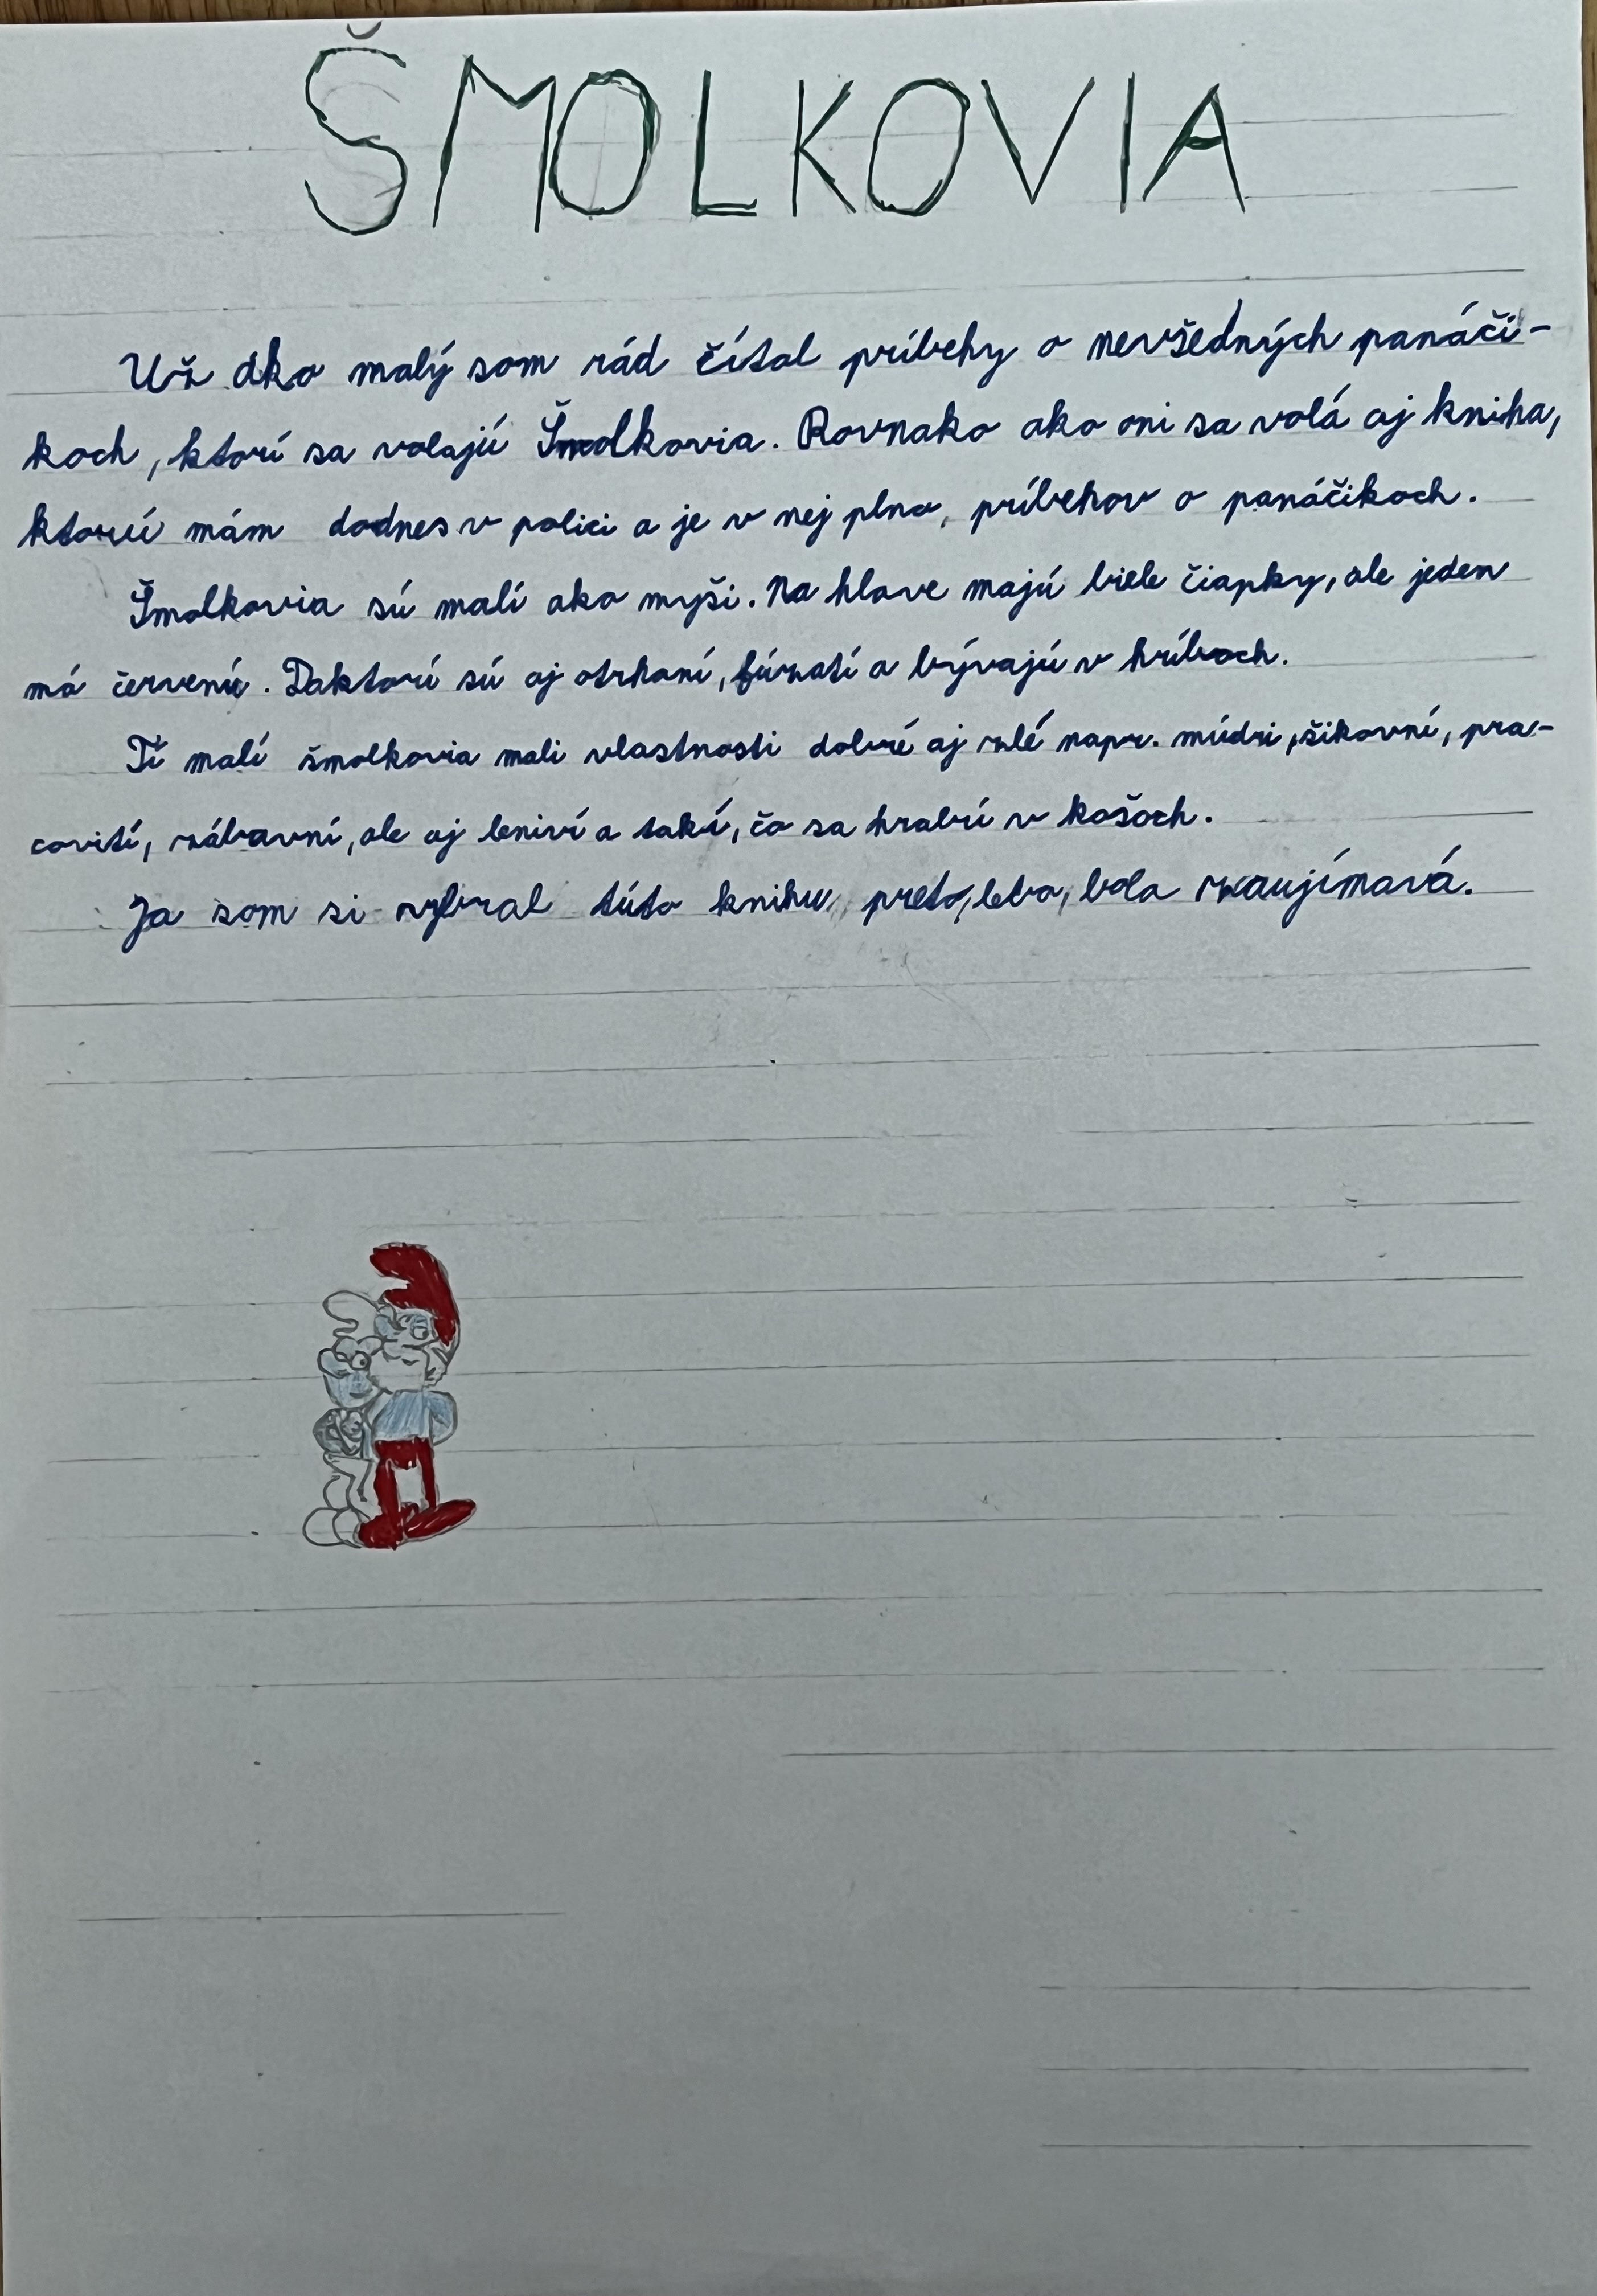 ŠMOLKOVIA
Už ako malý som rád čítal príbehy o nevšedných panáči-
koch, ktorí sa volajú Šmolkovia. Rovnako ako oni sa volá aj kniha,
ktorú mám dodnes v polici a je v nej plno, príbehov o panáčikoch.
Šmolkovia sú malí ako myši. Na hlave majú biele čiapky, ale jeden
má červenú. Daktorí sú aj otrhaní, fúzatí a bývajú v hríboch.
Tí malí šmolkovia mali vlastnosti dobré aj zlé napr. múdri, šikovní, pra-
covití, zábavní, ale aj leniví a takí, čo sa hrabú v košoch.
Ja som si vybral túto knihu, preto, lebo, bola zaujímavá.